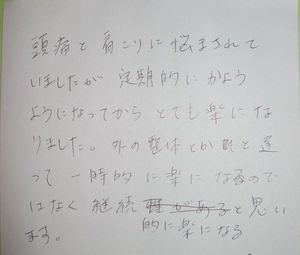 頭痛と肩こりに悩まされて
いましたが 定期的にかよう
ようになってから とても楽にな
りました。外の整体とかれと違
って 一時的に楽になるので
はなく継続 と思い
的に楽になる
ます。